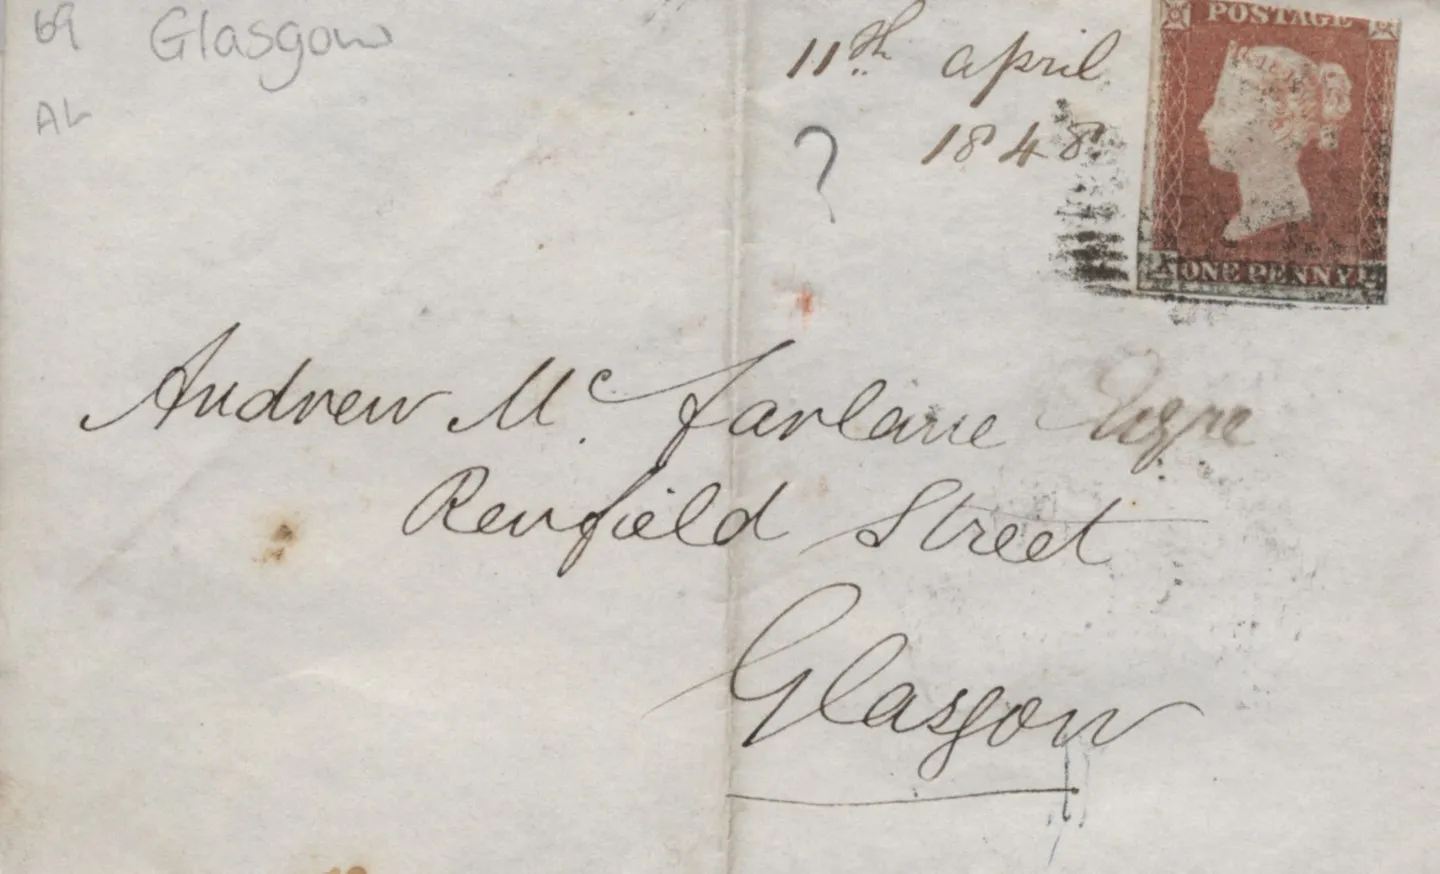 69 Glasgow
AL
11th april
1848
?
POSTAGE
ONE PENNY
Andrew Mc. farlane Esqre
Renfield Street
Glasgow